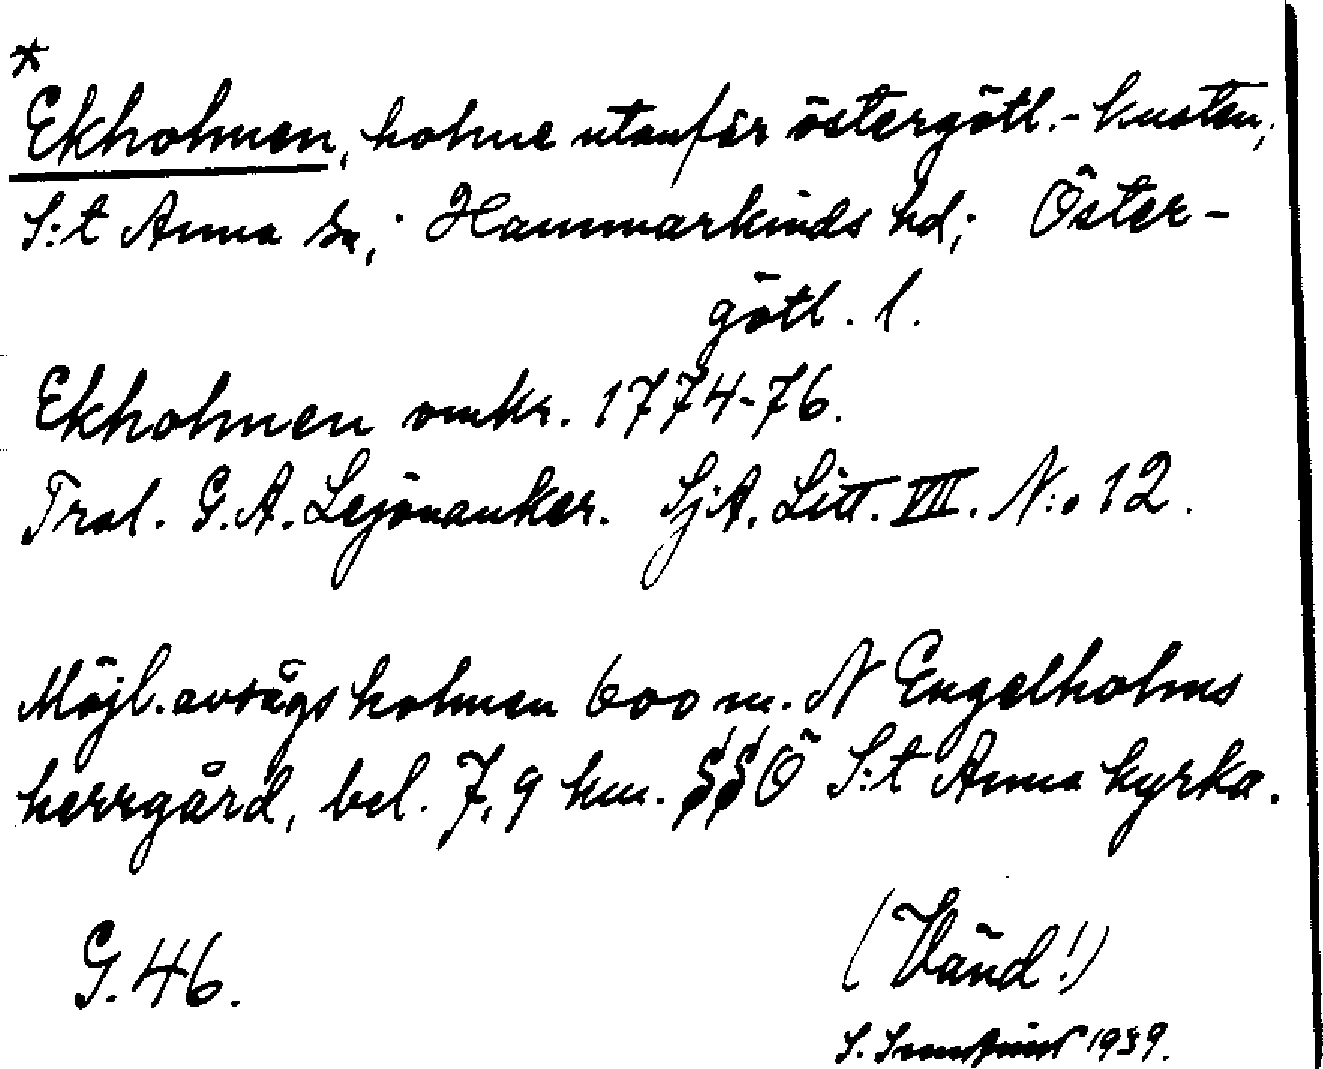 *
Ekholmen, holme utanför östergötl.-kusten,
S:t Anna sn,; Hammarkinds hd; Öster-
götl. l.
Ekholmen omkr. 1774-76.
Trol. G. A. Lejonanker. SjA. Litt. VII. N:o 12.
Möjl. avsågs holmen 600 m. N Engelholms
herrgård, bel. 7,9 km. SSÖ S:t Anna kyrka.
G. 46.
(Vänd!)
S. 1939.